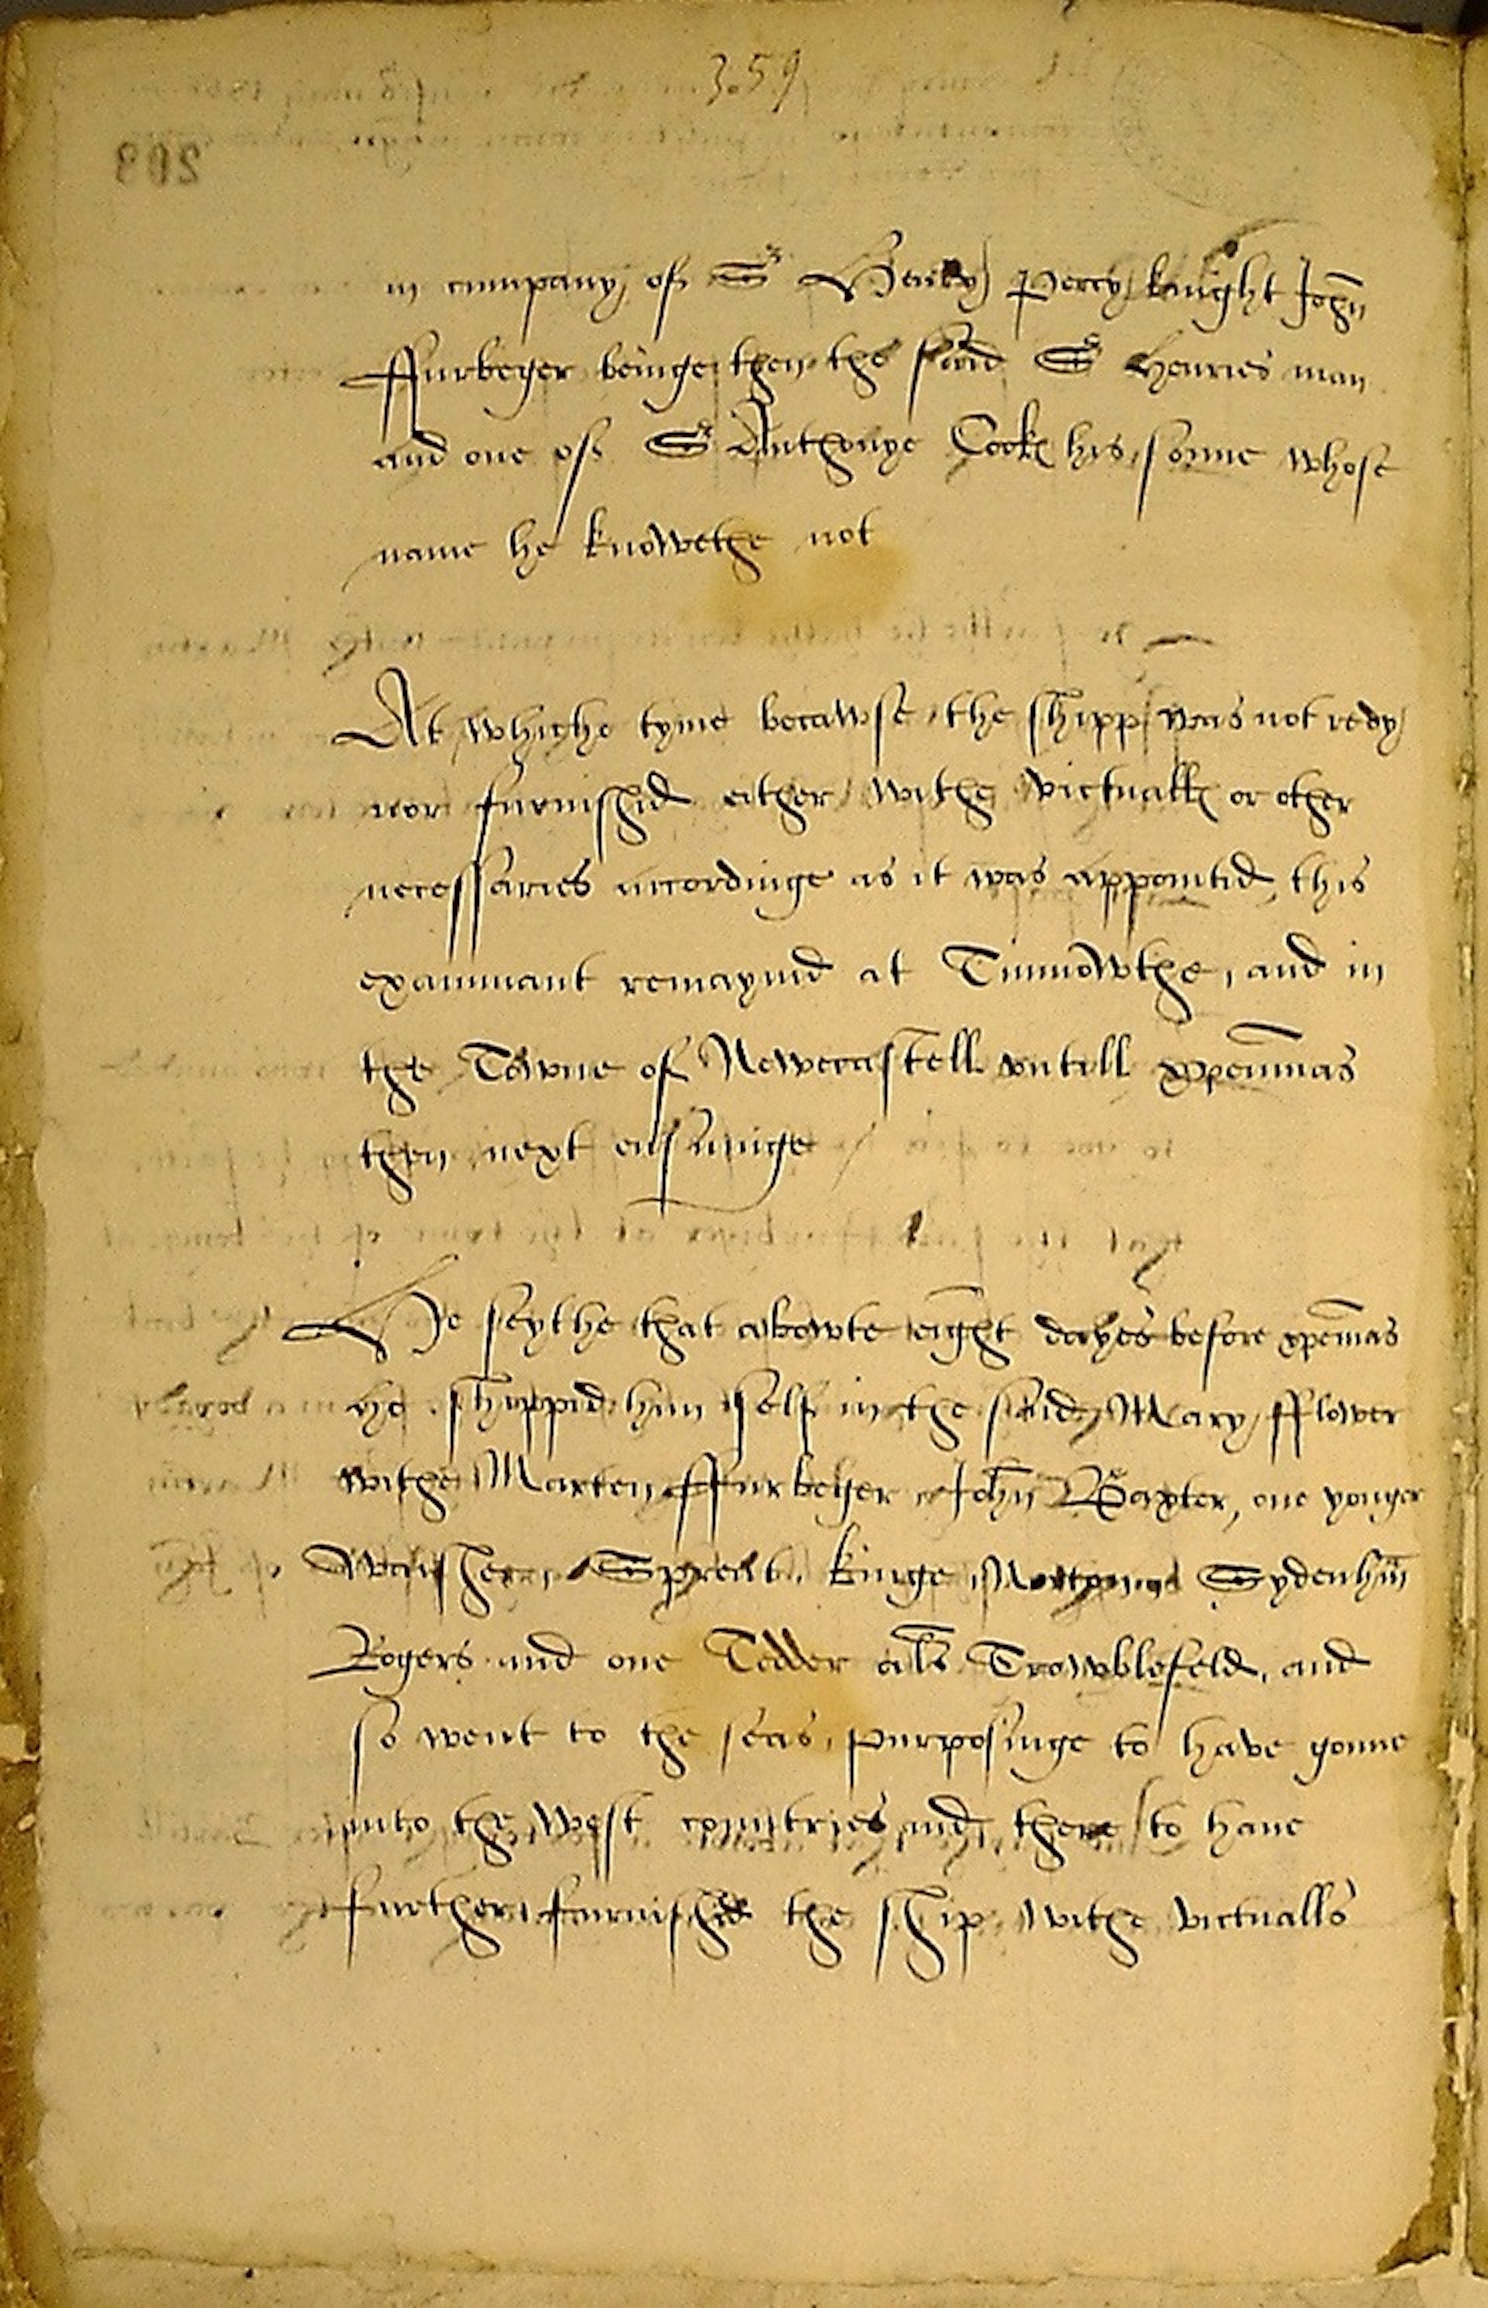 359
203
in cumpany of Sr Henry Percy knight John
Ffurbeyer beinge then the said Sr Henries man
and one of Sr Anthonye Cook his sonne whose
name he knowethe not
At whiche tyme becawse the shipp was not redy
nor furnishid either withe victualls or other
necessaries accordinge as it was appointid, this
examinant remaynid at Tinmowthe, and in
the Towne of Newecastell untill xpenmas
then next ensuinge
He seythe that abowte eight dayes before xpenmas
he shippid him self in the said Mary fflower
withe Marten ffurbeyer John Baxter, one yonger
Walsher, Sprent, kinge, Sydenhm
Rogers and one Tedder als Trowblefeld, and
so went to the seas, purposinge to have gonne
into the west countries and there to have
further furnishid the ship withe victualls